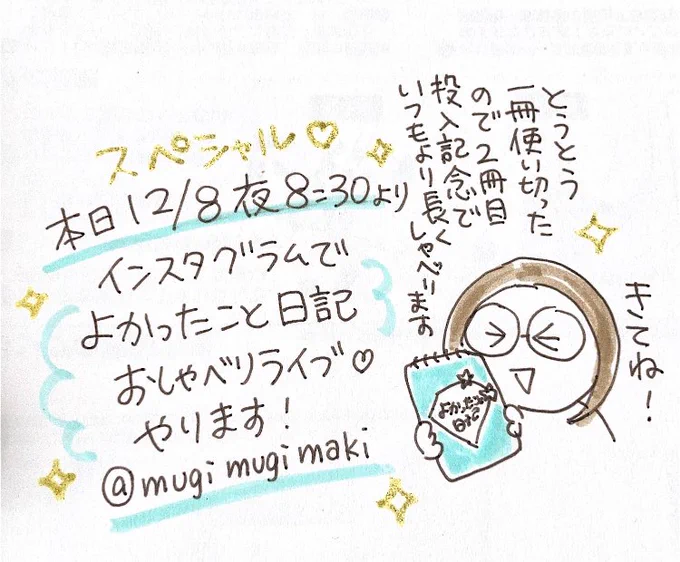 スペシャル♡
本日12/8夜8:30より
インスタグラムで
よかったこと日記
おしゃべりライブ♡
やります!
@mugimugimaki
とうとう
一冊使い切った
ので2冊目
投入記念で
いつもより長く
しゃべります
きてね!
よかったこと
日記